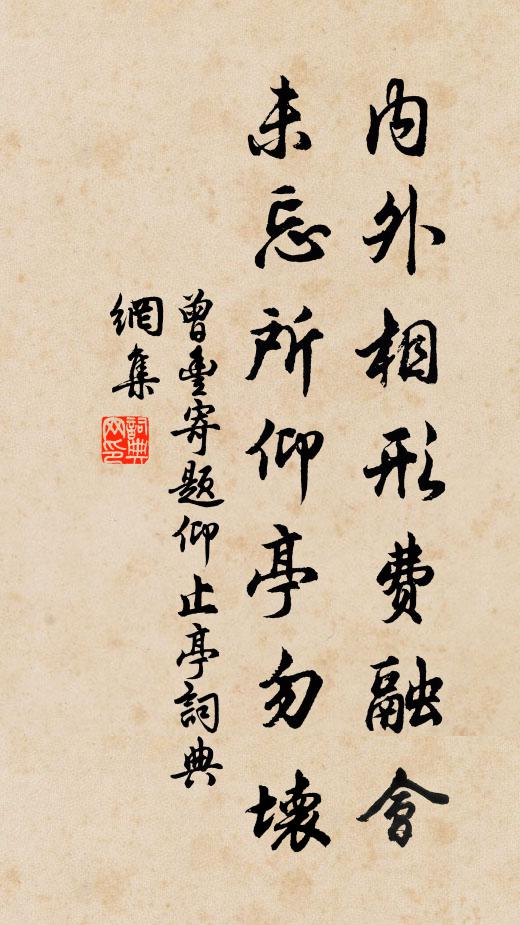 內外相形費融會
未忘所仰亭勿壞
曾豐寄題仰止亭詞典
網集
詞典
网印